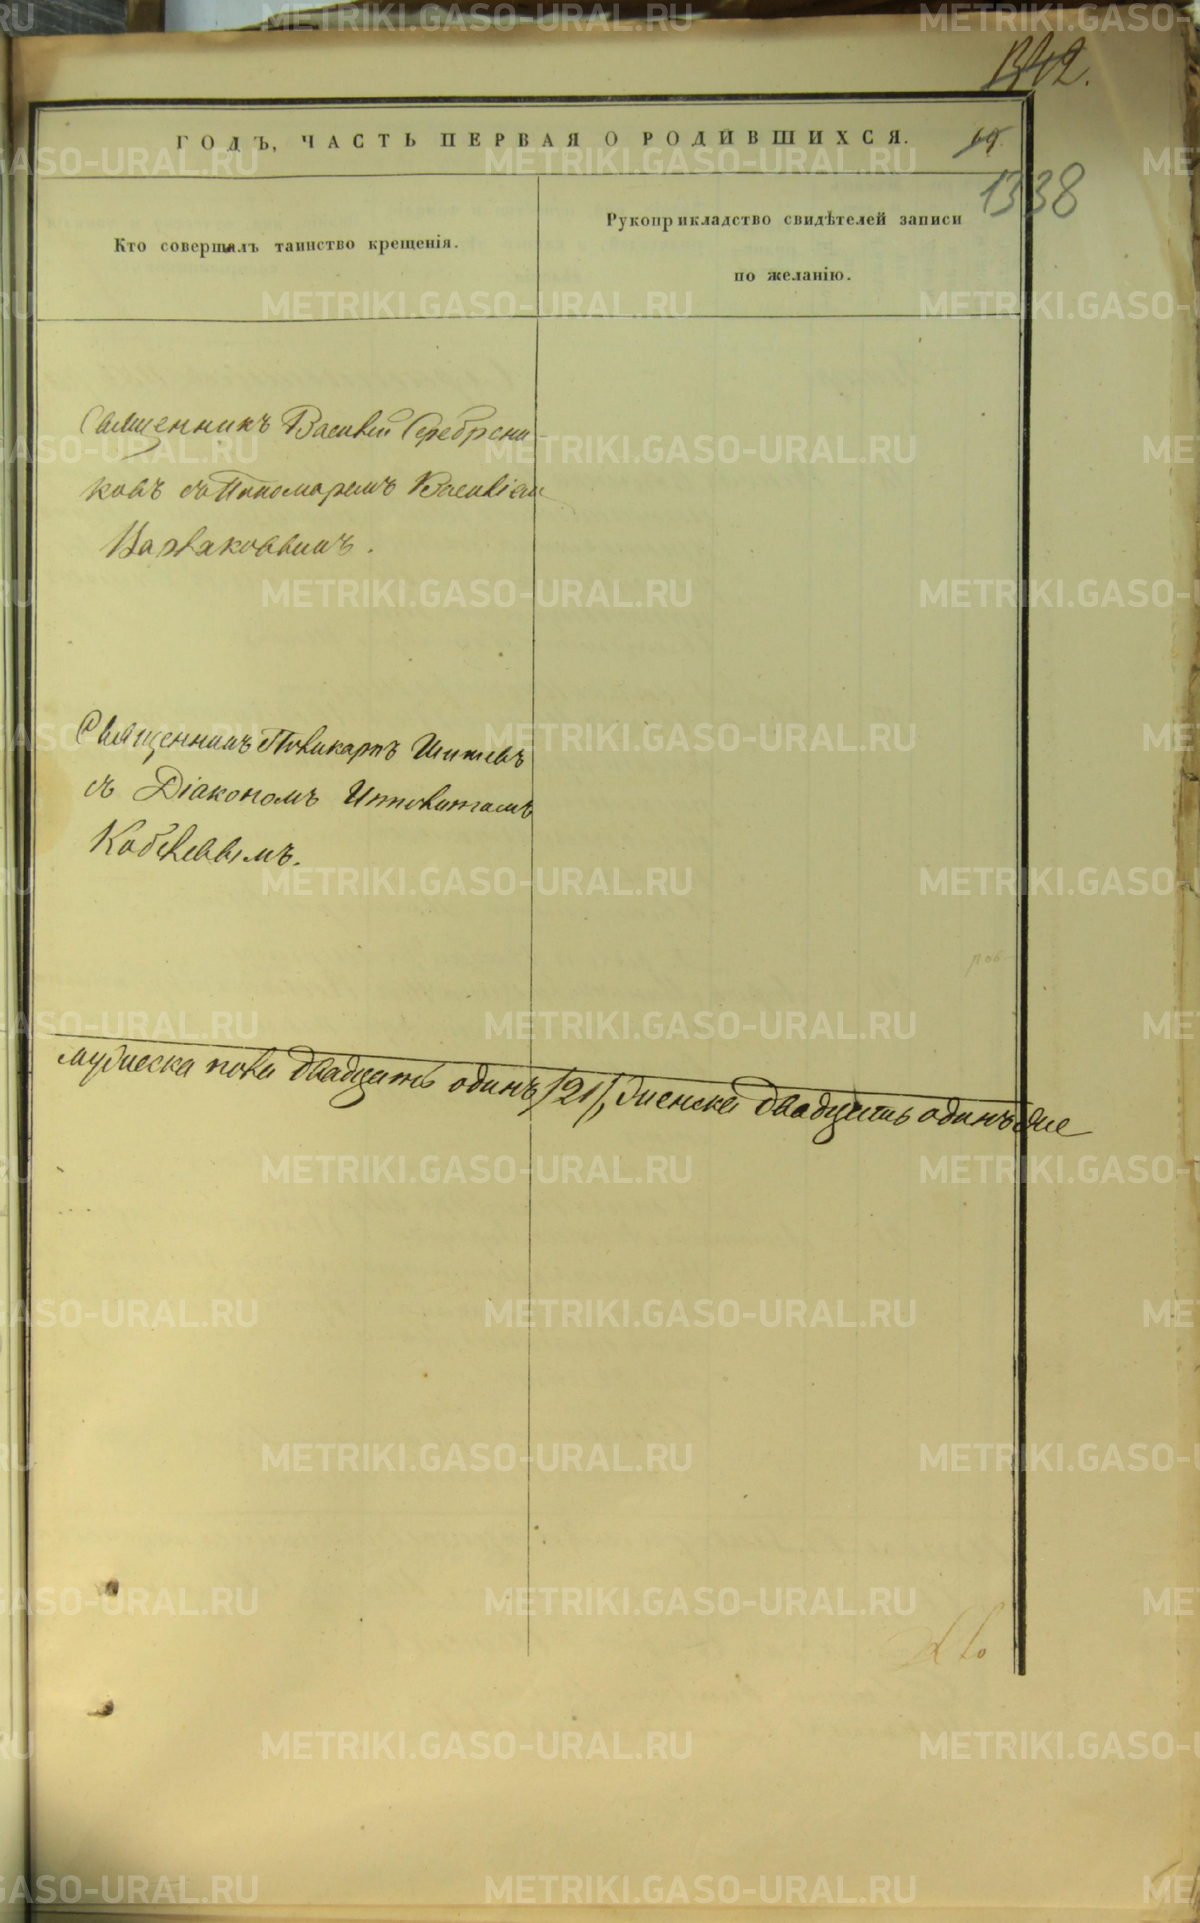 1342.
ГОДЪ, ЧАСТЬ ПЕРВАЯ О РОДИВШИХСЯ.
1338
Кто совершалъ таинство крещенія.
Рукоприкладство свидѣтелей записи
по желанію.
Священникъ Василій Серебрени
ковъ съ Пономаремъ Василіем
Священникъ Поликарпъ Шишевъ
съ Діакономъ Ипполитомъ
мужеска пола двадцать одинъ /21/, женска двадцать одинъ же
METRIKI.GASO-URAL.RU